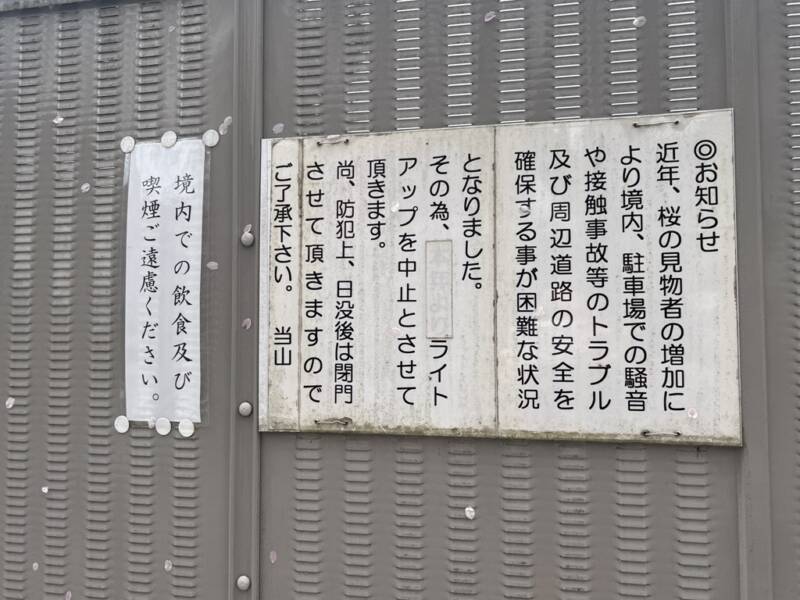 ◎お知らせ
近年、桜の見物者の増加に
より境内、駐車場での騒音
や接触事故等のトラブル
及び周辺道路の安全を
確保する事が困難な状況
となりました。
その為、ライト
アップを中止とさせて
頂きます。
尚、防犯上、日没後は閉門
させて頂きますので
ご了承下さい。 当山
境内での飲食及び
喫煙ご遠慮ください。